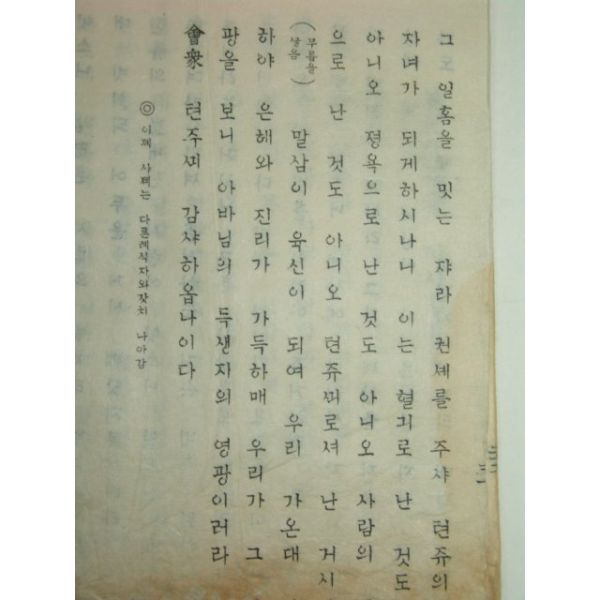 그 일홈을 밋는 쟈라 권세를 주샤 텬쥬의
자녀가 되게하시나니 이는 혈긔로 난 것도
아니오 졍욕으로 난 것도 아니오 사람의
으로 난 것도 아니오 텬쥬끠로셔 난 거시
(무릅을 꿀음) 말삼이 육신이 되여 우리 가온대
하야 은혜와 진리가 가득하매 우리가 그
광을 보니 아바님의 득생자의 영광이러라
會衆 텬주끠 감샤하옵나이다
◎ 이폐 사폐는 다른례식자와갓치 나아감